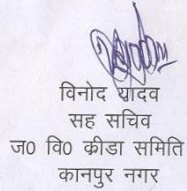 विनोद यादव
सह सचिव
ज0 वि0 क्रीडा समिति
कानपुर नगर